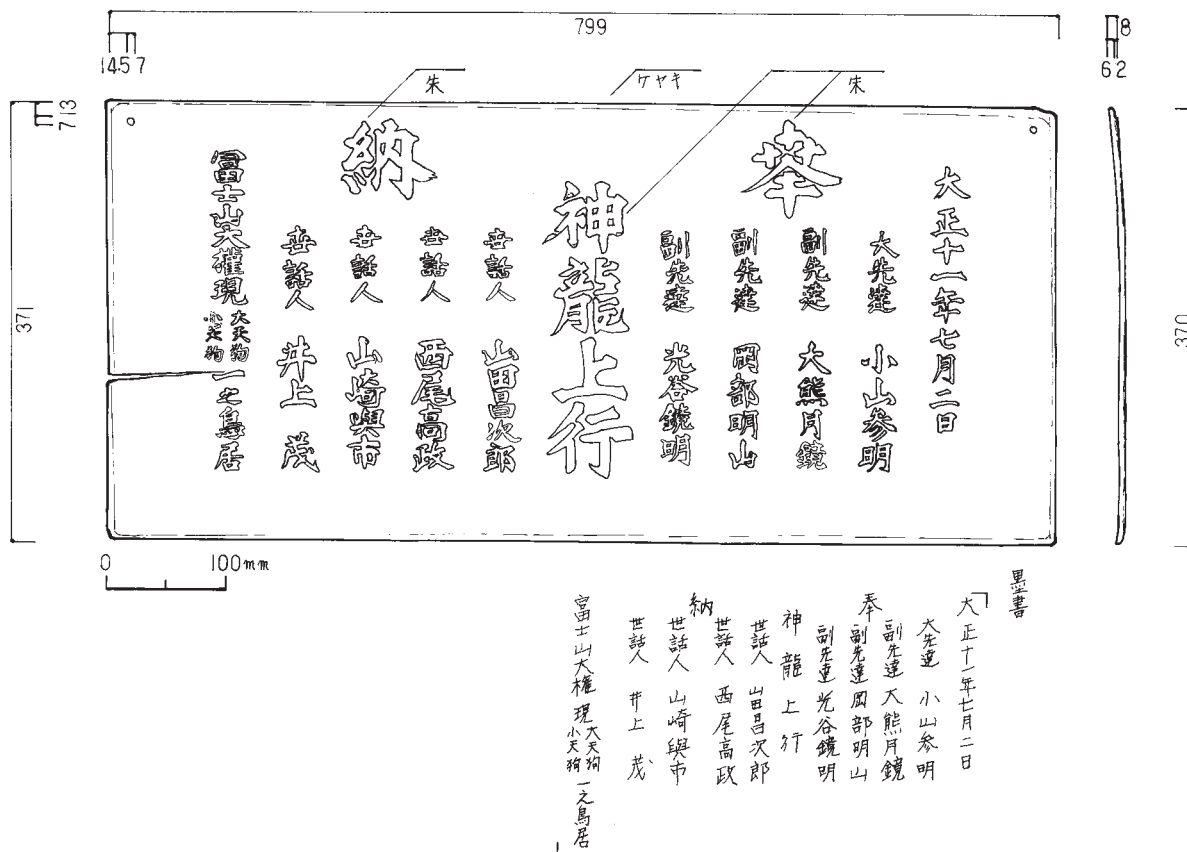 799
14 5 7
8
6 2
7 13
371
370
朱
ケヤキ
朱
大正十一年七月二日
奉
大先達 小山参明
副先達 大熊月鏡
副先達 岡部明山
副先達 光谷鏡明
神龍上行
納
世話人 山田昌次郎
世話人 西尾高政
世話人 山崎與市
世話人 井上茂
富士山大権現 大天狗 小天狗 一之鳥居
0 100mm
墨書
「大正十一年七月二日
大先達 小山参明
奉
副先達 大熊月鏡
副先達 岡部明山
副先達 光谷鏡明
神龍上行
世話人 山田昌次郎
納
世話人 西尾高政
世話人 山崎與市
世話人 井上茂
富士山大権現 大天狗 小天狗 一之鳥居」